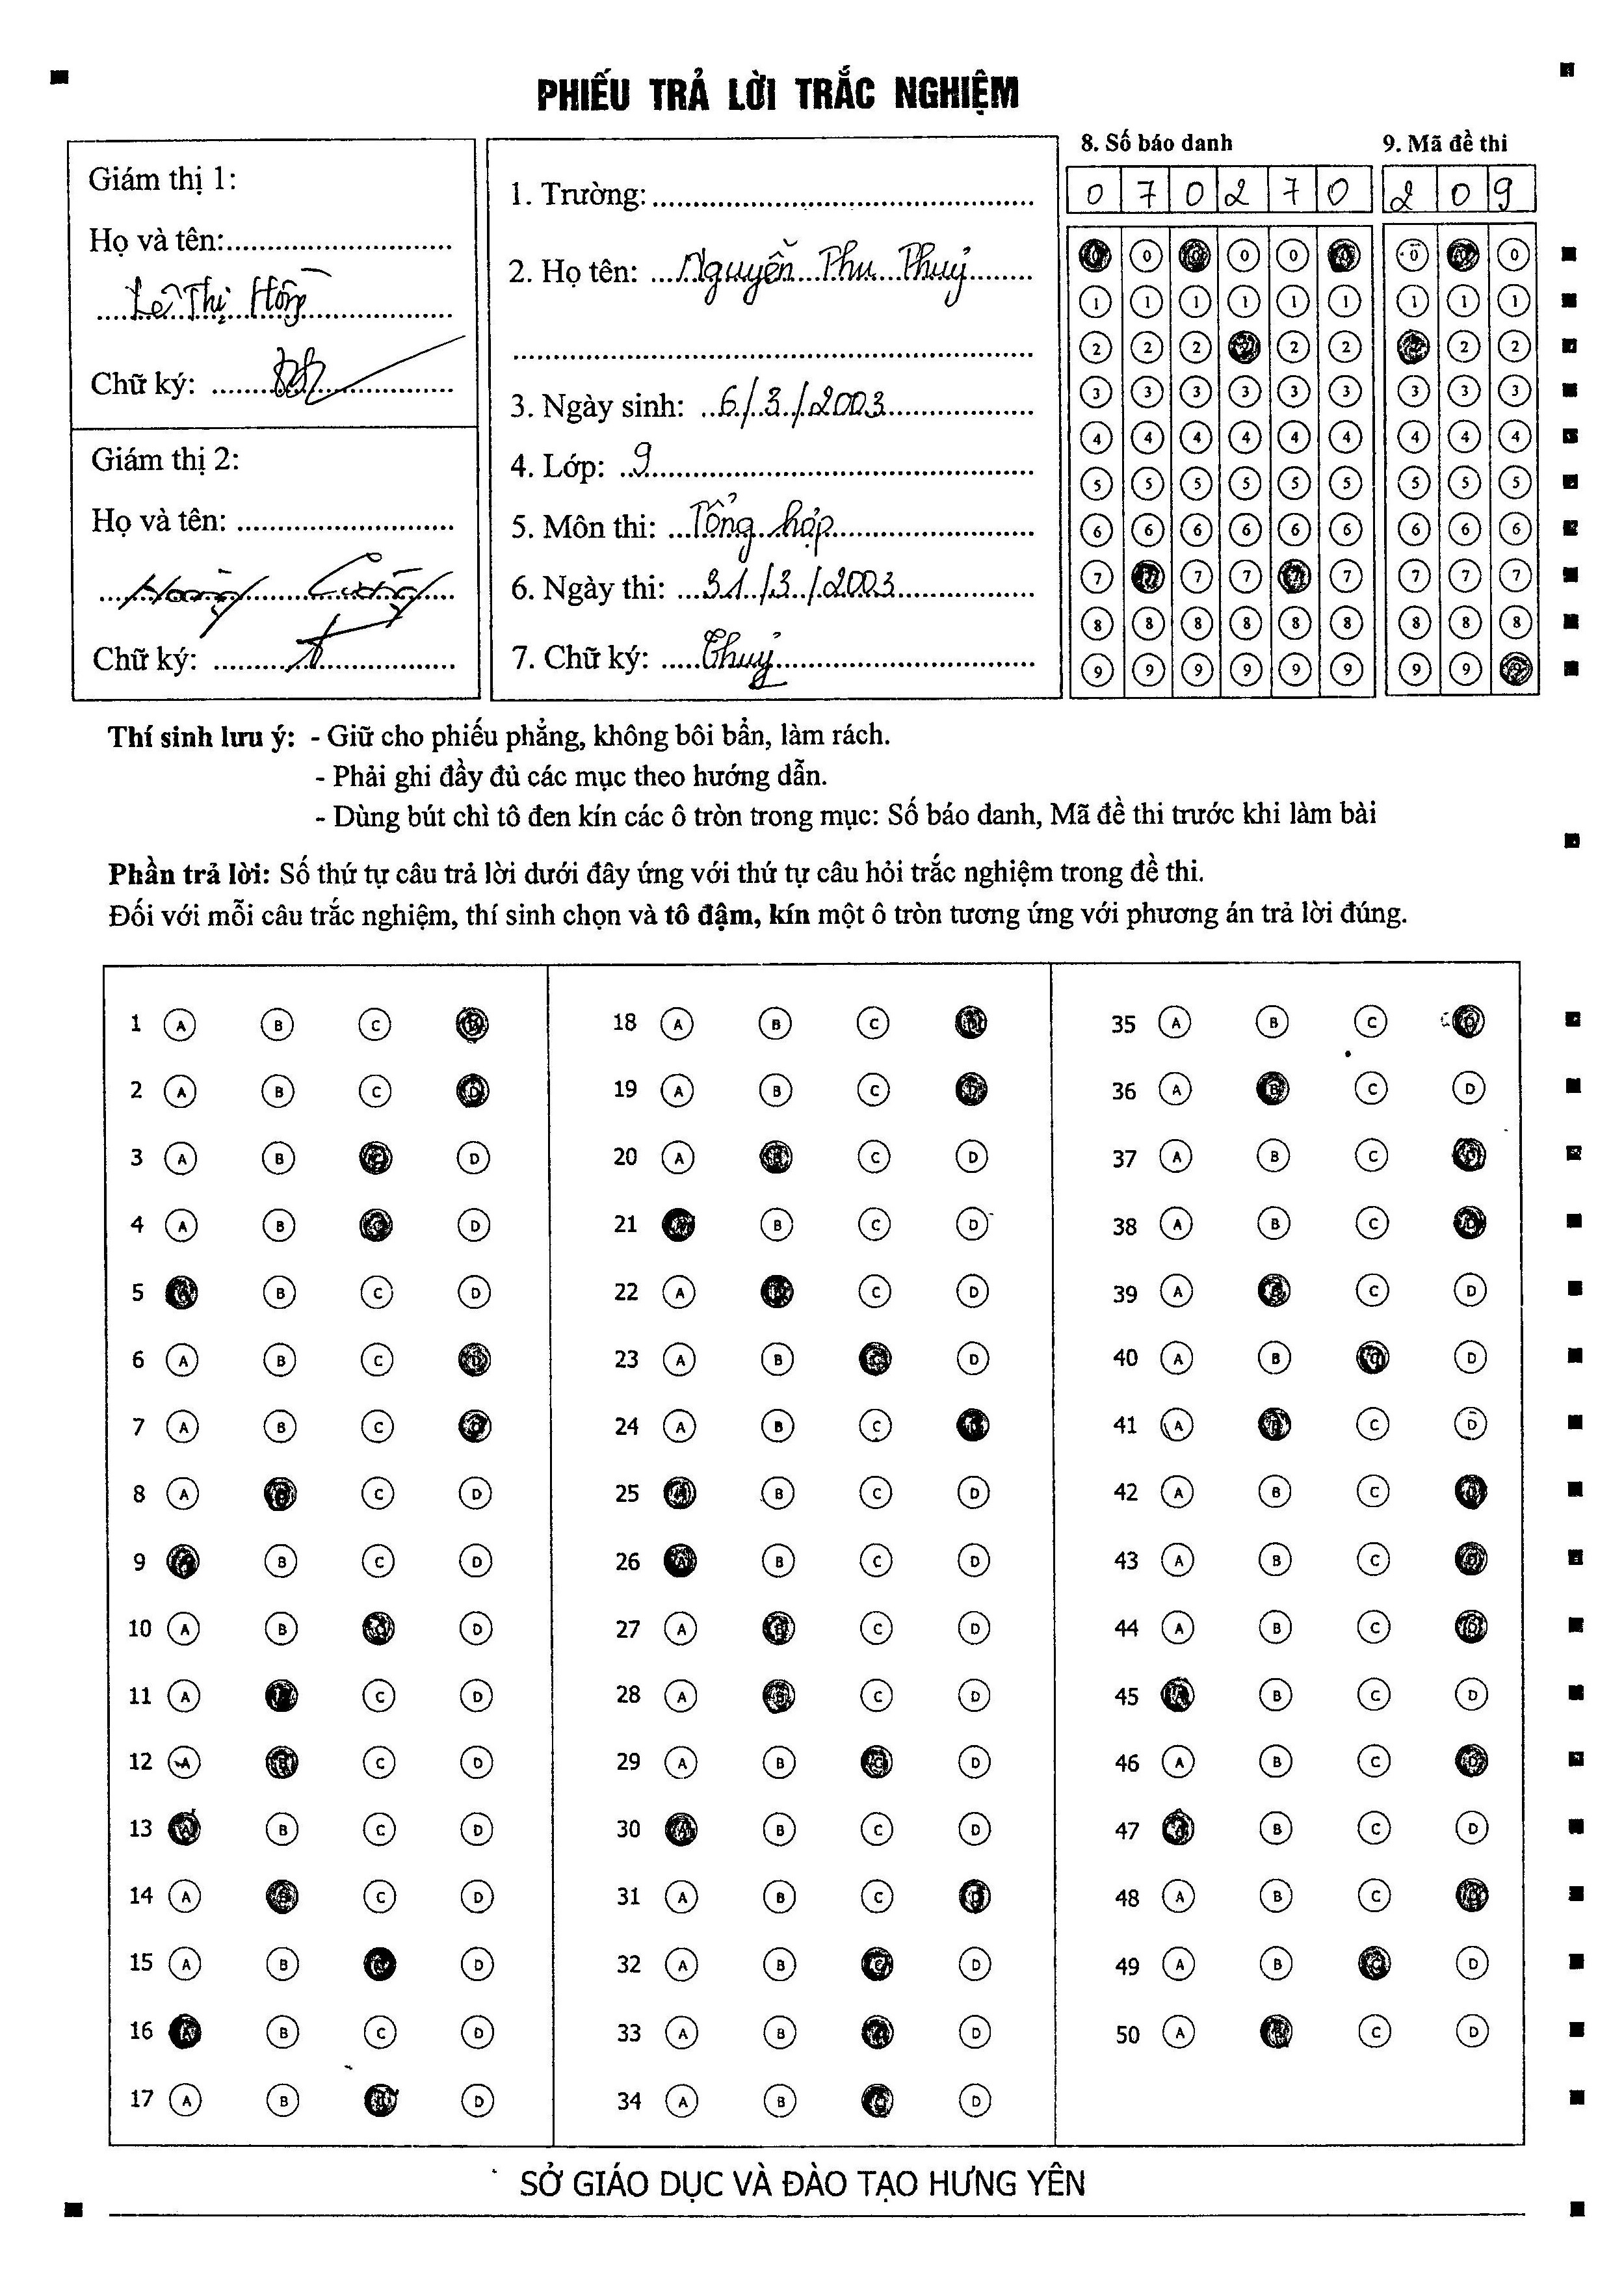 PHIẾU TRẢ LỜI TRẮC NGHIỆM
Giám thị 1:
Họ và tên:
Lê Thị Hồng
Chữ ký:
Giám thị 2:
Họ và tên:
Hoàng Cường
Chữ ký:
1. Trường:
2. Họ tên: Nguyễn Thu Thuỷ
3. Ngày sinh: 6/3/2003
4. Lớp: 9
5. Môn thi: Tổng hợp
6. Ngày thi: 31/3/2003
7. Chữ ký: Thuỷ
8. Số báo danh
0 7 0 2 7 0
9. Mã đề thi
2 0 9
0 0 0 0 0 0 0 0 0
1 1 1 1 1 1 1 1 1
2 2 2 2 2 2 2 2 2
3 3 3 3 3 3 3 3 3
4 4 4 4 4 4 4 4 4
5 5 5 5 5 5 5 5 5
6 6 6 6 6 6 6 6 6
7 7 7 7 7 7 7 7 7
8 8 8 8 8 8 8 8 8
9 9 9 9 9 9 9 9 9
Thí sinh lưu ý: - Giữ cho phiếu phẳng, không bôi bẩn, làm rách.
- Phải ghi đầy đủ các mục theo hướng dẫn.
- Dùng bút chì tô đen kín các ô tròn trong mục: Số báo danh, Mã đề thi trước khi làm bài
Phần trả lời: Số thứ tự câu trả lời dưới đây ứng với thứ tự câu hỏi trắc nghiệm trong đề thi.
Đối với mỗi câu trắc nghiệm, thí sinh chọn và tô đậm, kín một ô tròn tương ứng với phương án trả lời đúng.
1 A B C D
2 A B C D
3 A B C D
4 A B C D
5 A B C D
6 A B C D
7 A B C D
8 A B C D
9 A B C D
10 A B C D
11 A B C D
12 A B C D
13 A B C D
14 A B C D
15 A B C D
16 A B C D
17 A B C D
18 A B C D
19 A B C D
20 A B C D
21 A B C D
22 A B C D
23 A B C D
24 A B C D
25 A B C D
26 A B C D
27 A B C D
28 A B C D
29 A B C D
30 A B C D
31 A B C D
32 A B C D
33 A B C D
34 A B C D
35 A B C D
36 A B C D
37 A B C D
38 A B C D
39 A B C D
40 A B C D
41 A B C D
42 A B C D
43 A B C D
44 A B C D
45 A B C D
46 A B C D
47 A B C D
48 A B C D
49 A B C D
50 A B C D
SỞ GIÁO DỤC VÀ ĐÀO TẠO HƯNG YÊN